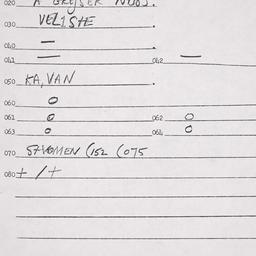 020 A GREJSER NUBS.
030 VELISTE .
040 — .
041 — 042 —
050 KA, VAN .
060 0
061 0 062 0
063 0 064 0
070 (152 (075
080 + /+